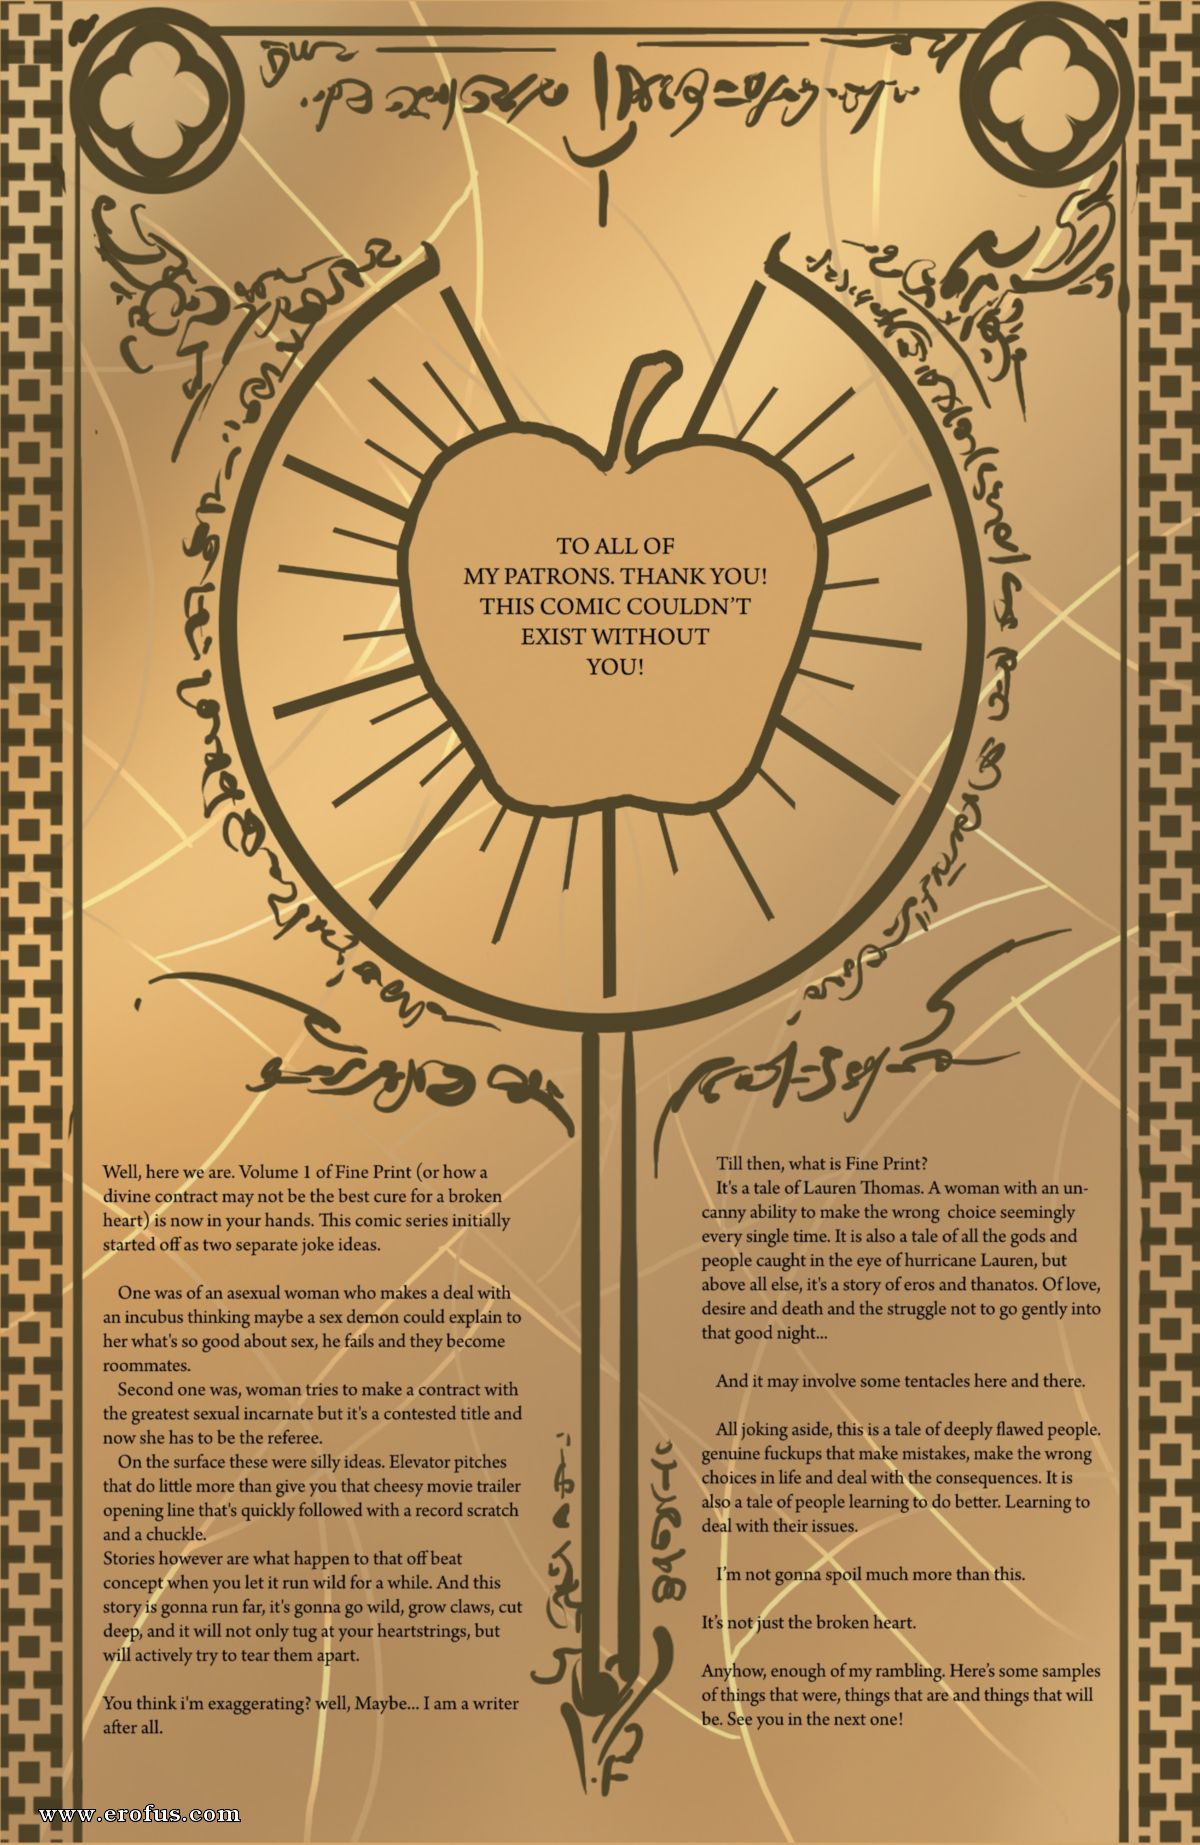 TO ALL OF
MY PATRONS. THANK YOU!
THIS COMIC COULDN'T
EXIST WITHOUT
YOU!
Well, here we are. Volume 1 of Fine Print (or how a
divine contract may not be the best cure for a broken
heart) is now in your hands. This comic series initially
started off as two separate joke ideas.
One was of an asexual woman who makes a deal with
an incubus thinking maybe a sex demon could explain to
her what's so good about sex, he fails and they become
roommates.
Second one was, woman tries to make a contract with
the greatest sexual incarnate but it's a contested title and
now she has to be the referee.
On the surface these were silly ideas. Elevator pitches
that do little more than give you that cheesy movie trailer
opening line that's quickly followed with a record scratch
and a chuckle.
Stories however are what happen to that off beat
concept when you let it run wild for a while. And this
story is gonna run far, it's gonna go wild, grow claws, cut
deep, and it will not only tug at your heartstrings, but
will actively try to tear them apart.
You think i'm exaggerating? well, Maybe... I am a writer
after all.
Till then, what is Fine Print?
It's a tale of Lauren Thomas. A woman with an un-
canny ability to make the wrong choice seemingly
every single time. It is also a tale of all the gods and
people caught in the eye of hurricane Lauren, but
above all else, it's a story of eros and thanatos. Of love,
desire and death and the struggle not to go gently into
that good night...
And it may involve some tentacles here and there.
All joking aside, this is a tale of deeply flawed people.
genuine fuckups that make mistakes, make the wrong
choices in life and deal with the consequences. It is
also a tale of people learning to do better. Learning to
deal with their issues.
I'm not gonna spoil much more than this.
It's not just the broken heart.
Anyhow, enough of my rambling. Here's some samples
of things that were, things that are and things that will
be. See you in the next one!
www.erofus.com